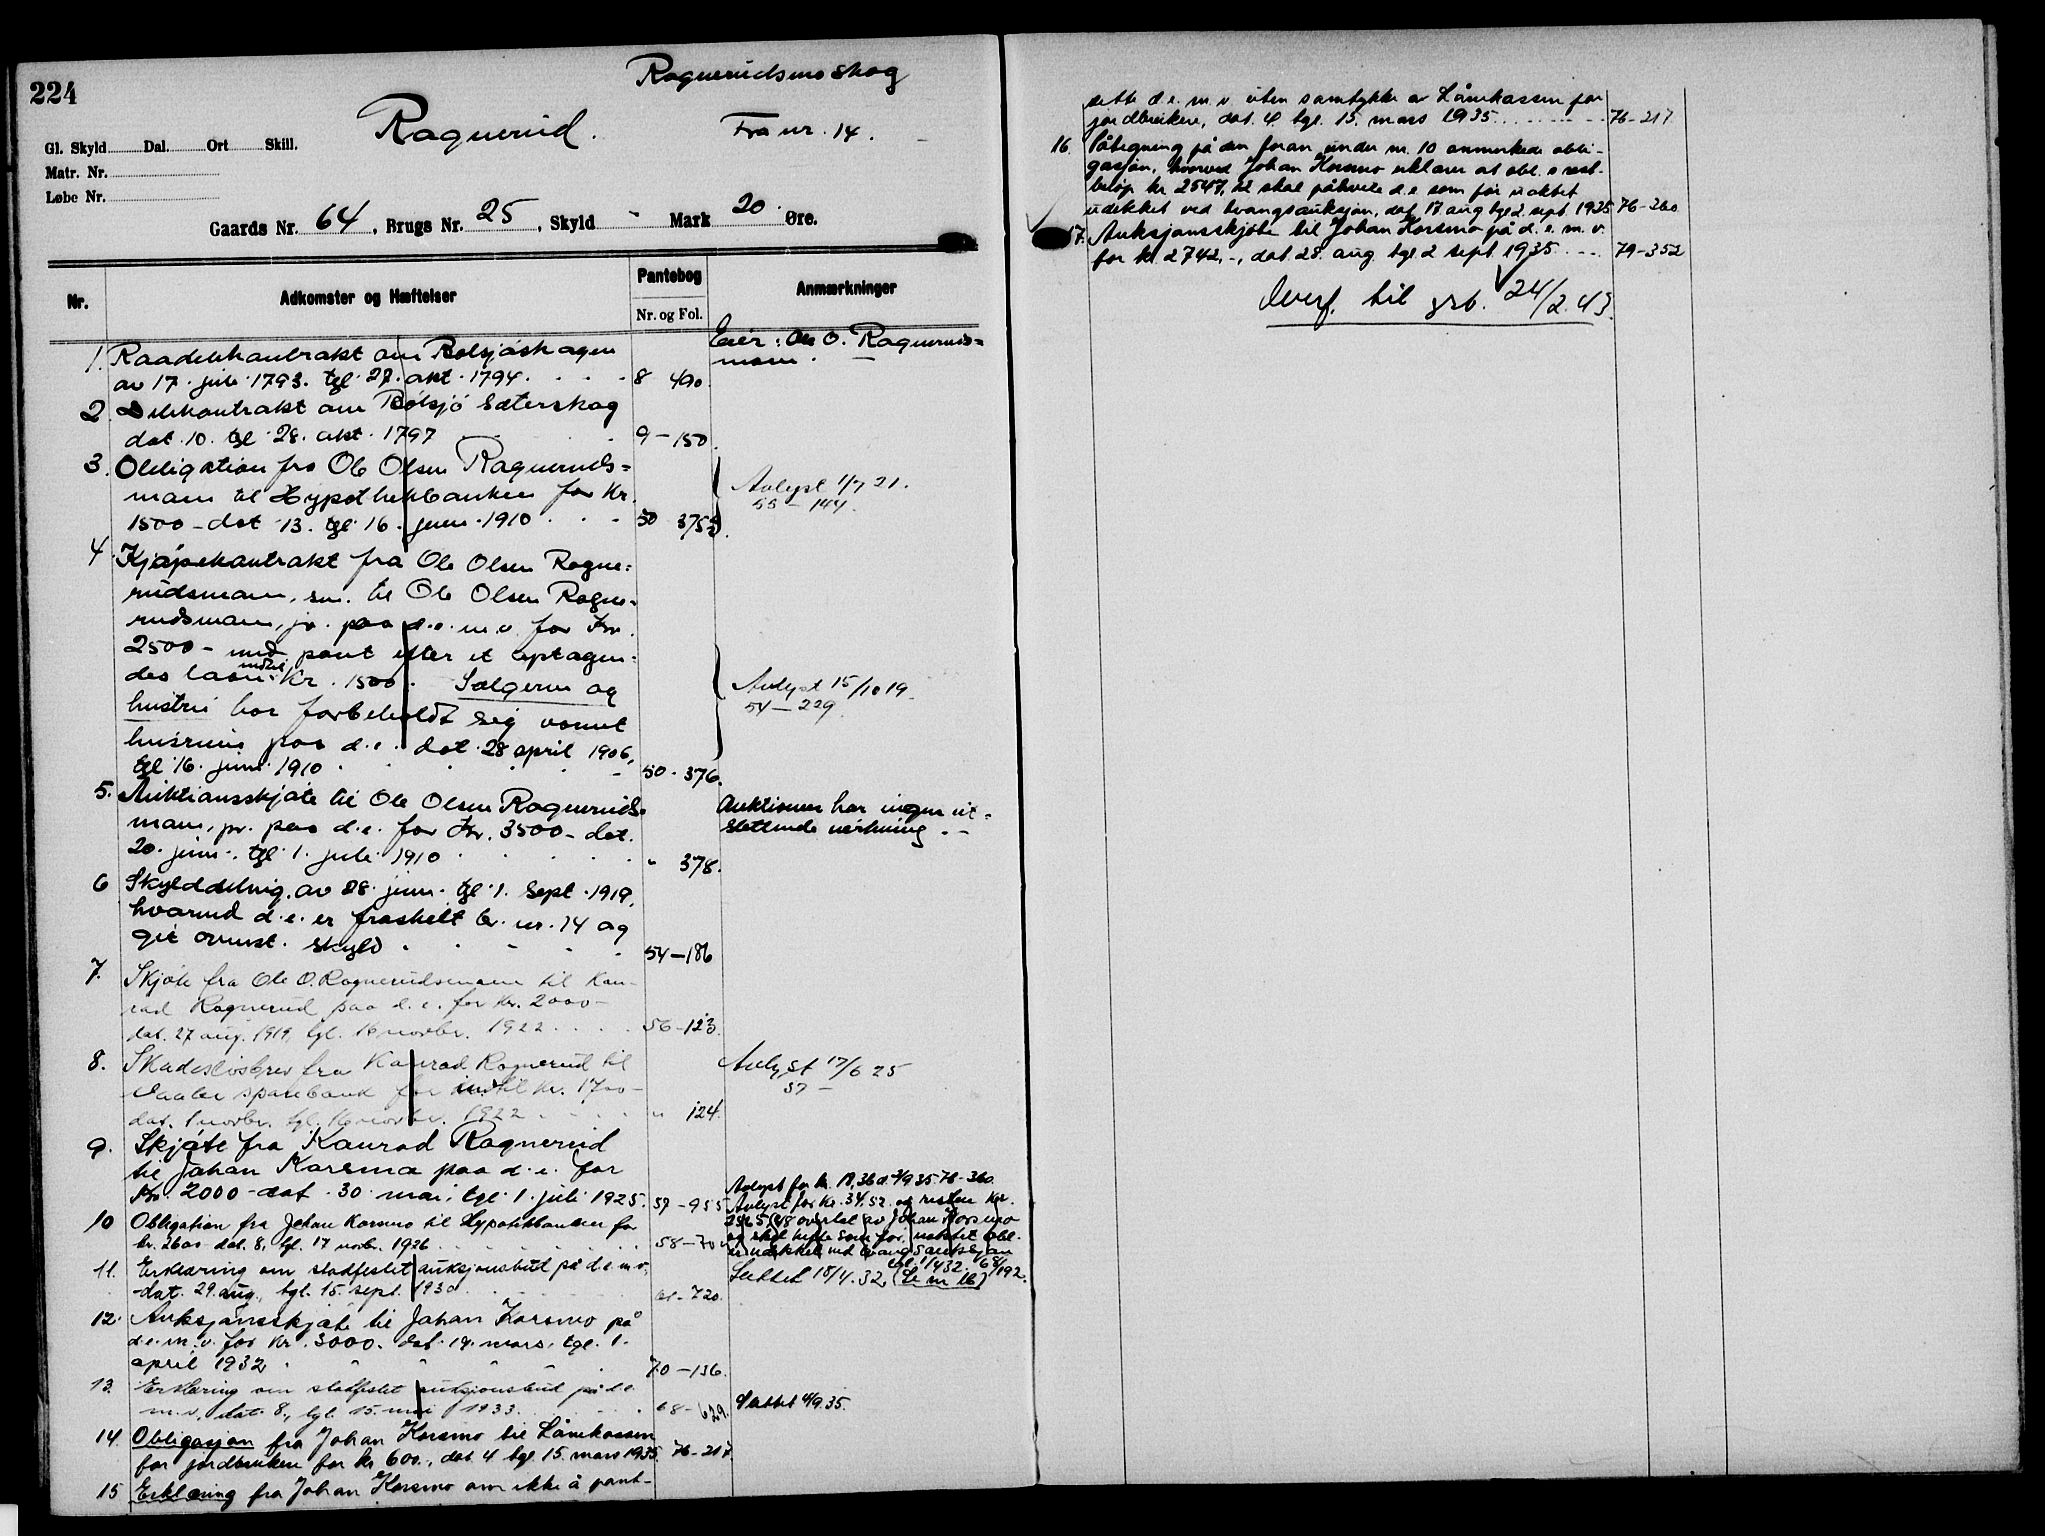 224
Rognerudsmoskog
Rognerud.
Fra nr. 14.
Gl. Skyld Dal. Ort Skill.
Matr. Nr.
Løbe Nr.
Gaards Nr. 64, Brugs Nr. 25, Skyld - Mark 20 Øre.
Nr.
Adkomster og Hæftelser
Pantebog
Nr. og Fol.
Anmærkninger
Eier: Ole O. Rogneruds=
moen.
1. Raadelikontrakt om Rolsjöskogen
av 17. juli 1793. tgl 27. okt. 1794. 8 490.
2. Delekontrakt om Rolsjö Sæterskog
dat. 10. tgl 28. okt. 1797 9-150.
3. Obligation fra Ole Olsen Rogneruds=
moen til Hypothekbanken for Kr.
1500 - dat 13. tgl 16. juni 1910 50 375
Avlyst 1/7 21.
55-144.
4. Kjøpekontrakt fra Ole Olsen Rogne=
rudsmoen, sen. til Ole Olsen Rogne=
rudsmoen, jr. paa d.e.m.v. for Kr.
2500 - med pant efter et optagen=
des laan indtil Kr. 1500. Sælgeren og
hustru har forbeholdt sig vaanet
husrum paa d.e. dat 28 april 1906,
tgl 16. juni 1910 50-376.
Avlyst 15/10 19.
54-229.
5. Auktionsskjöte til Ole Olsen Rogneruds=
moen, jr. paa d.e. for Kr. 3500 - dat.
20. juni, tgl 1. juli 1910 " 378.
Auktionen har ingen ut=
slettende virkning.
6 Skylddeling av 28. juni tgl 1. sept. 1919,
hvorved d.e. er fraskilt br. nr. 14 og
git ovennt. skyld 54-186
7. Skjöte fra Ole O. Rognerudsmoen til Kon-
rad Rognerud paa d.e. for kr. 2000-
dat. 27 aug. 1919, tgl. 16 novbr. 1922 56-123.
8. Skadeslösbrev fra Konrad Rognerud til
Vaaler sparebank for indtil kr. 1700-
dat. 1 novbr. tgl. 16 novbr. 1922 " 124.
Avlyst 17/6 25
57-
9. Skjöte fra Konrad Rognerud
til Johan Korsmo paa d.e. for
Kr. 2000 - dat. 30 mai, tgl. 1. juli 1925. 57-955
10 Obligation fra Johan Korsmo til Hypotekbanken for
kr. 2600 dat. 8, tgl. 17 novbr. 1926 58-70
Avlyst for kr. 18,36 d. 2/9 35 76-360.
Avlyst for kr. 34,52 og resten kr.
2565,48 overtal av Johan Korsmo
og skal hefte som før, uaktet obl.
er udekket ved tvangsauksjon
tgl. 1/4 32. 68/192.
11. Erklæring om stadfestet auksjonsbud på d.e.m.v.
dat. 29. aug., tgl. 15. sept. 1930 61-720.
Slettet 18/4.32. (Se nr 16)
12. Auksjonsskjøte til Johan Korsmo på
d.e.m.v. for kr. 3000. dat 19. mars, tgl. 1.
april 1932 70-136.
13. Erklæring om stadfestet auksjonsbud på d.e.
m.v., dat. 8., tgl. 15. mai 1933. 68-629.
Slettet 2/9 35.
14. Obligasjon fra Johan Korsmo til Lånekassen
for jordbrukere for kr 600., dat 4 tgl 15. mars 1935. 76-217.
15 Erklæring fra Johan Korsmo om ikke å pant-
sette d.e.m.v. uten samtykke av Lånekassen for
jordbrukere, dat. 4. tgl. 15. mars 1935 76-217
16. Påtegning på den foran under nr. 10 anmerkede obli-
gasjon, hvorved Johan Korsmo erklærer at obl.s rest-
beløp kr. 2547,12 skal påhvile d.e. som før uaktet
udekket ved tvangsauksjon, dat. 17 aug tgl 2. sept. 1935 76-360
17. Auksjonsskjøte til Johan Korsmo på d.e.m.v.
for kr. 2742,-, dat 28. aug tgl 2 sept 1935 79-352
Overf. til grb. 24/2.43.